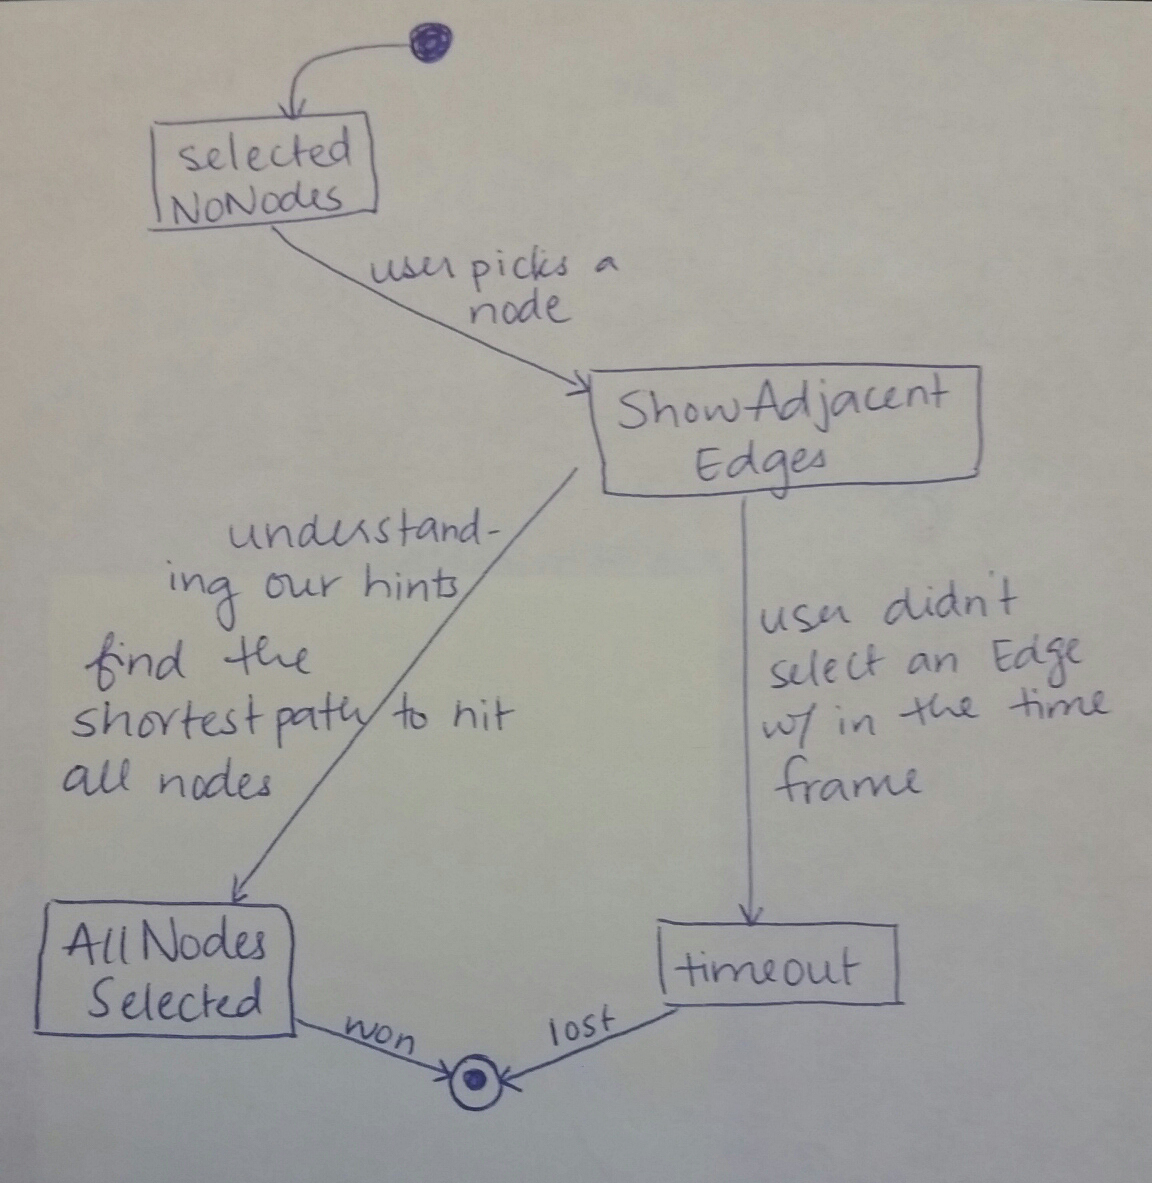 selected
NoNodes
user picks a
node
ShowAdjacent
Edges
understand-
ing our hints
find the
shortest path to hit
all nodes
user didn't
select an Edge
w/ in the time
frame
All Nodes
Selected
timeout
won
lost